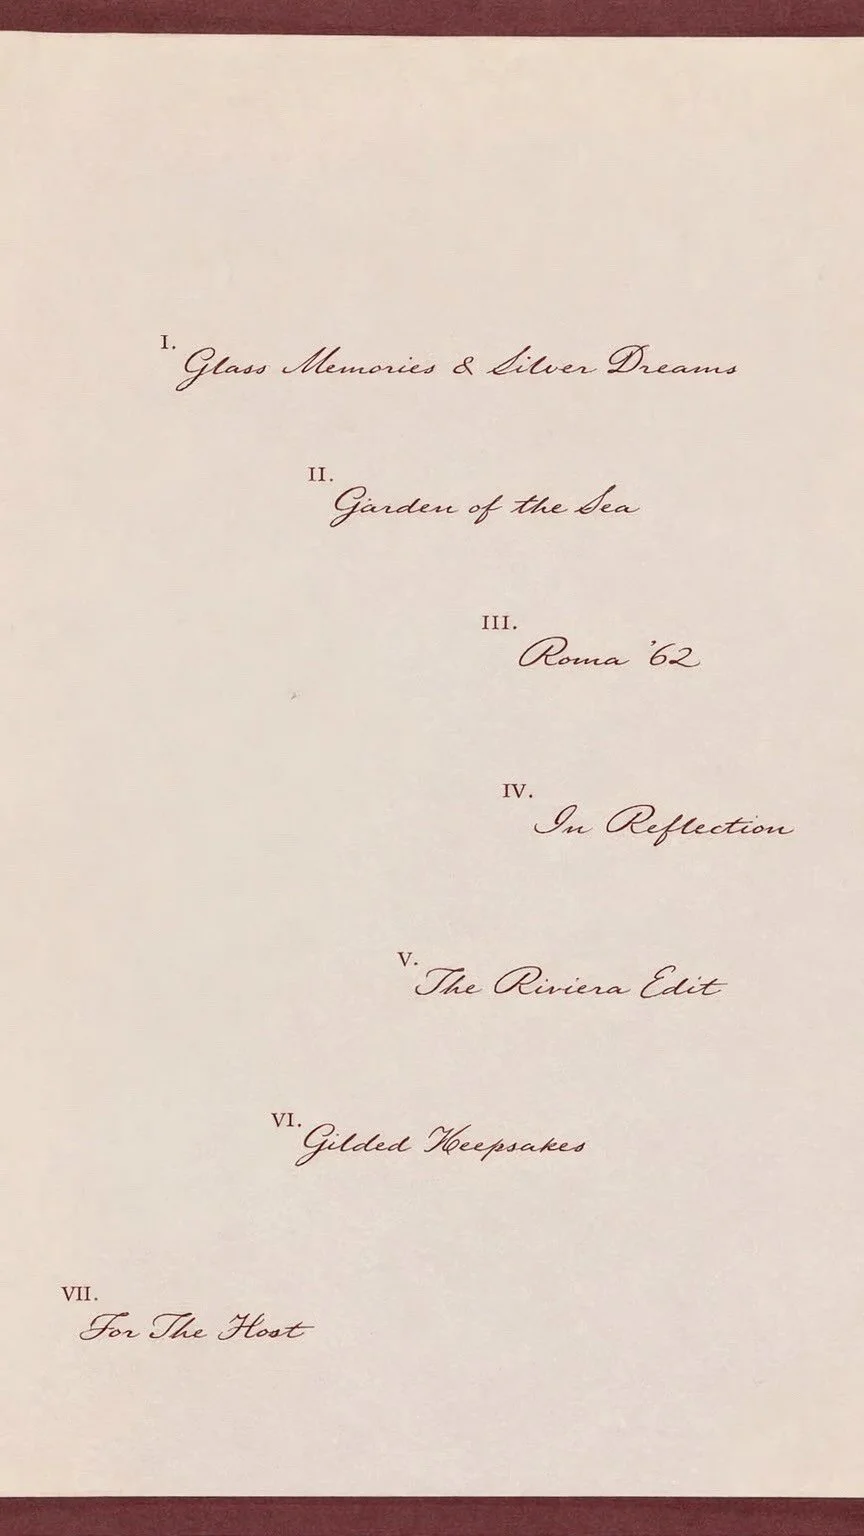 I.
Glass Memories & Silver Dreams
II.
Garden of the Sea
III.
Roma '62
IV.
In Reflection
V.
The Riviera Edit
VI.
Gilded Keepsakes
VII.
For The Host